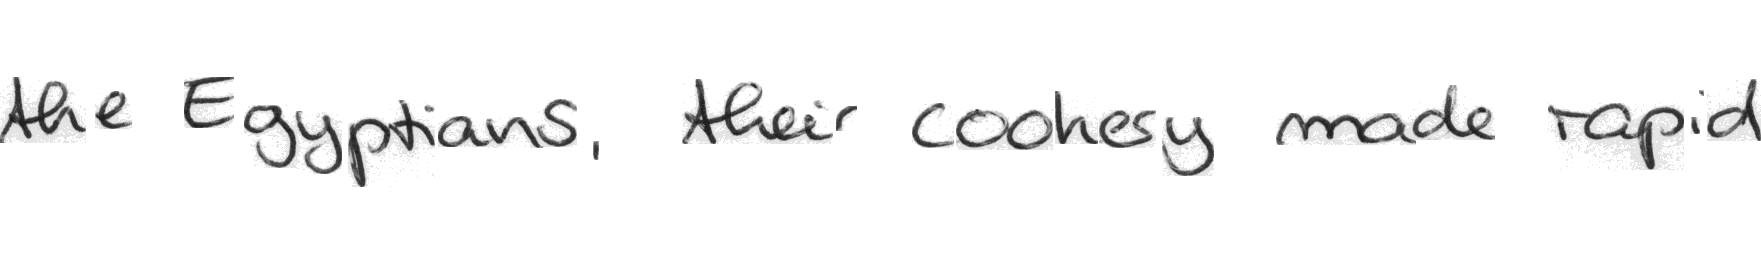 the Egyptians, their cookery made rapid